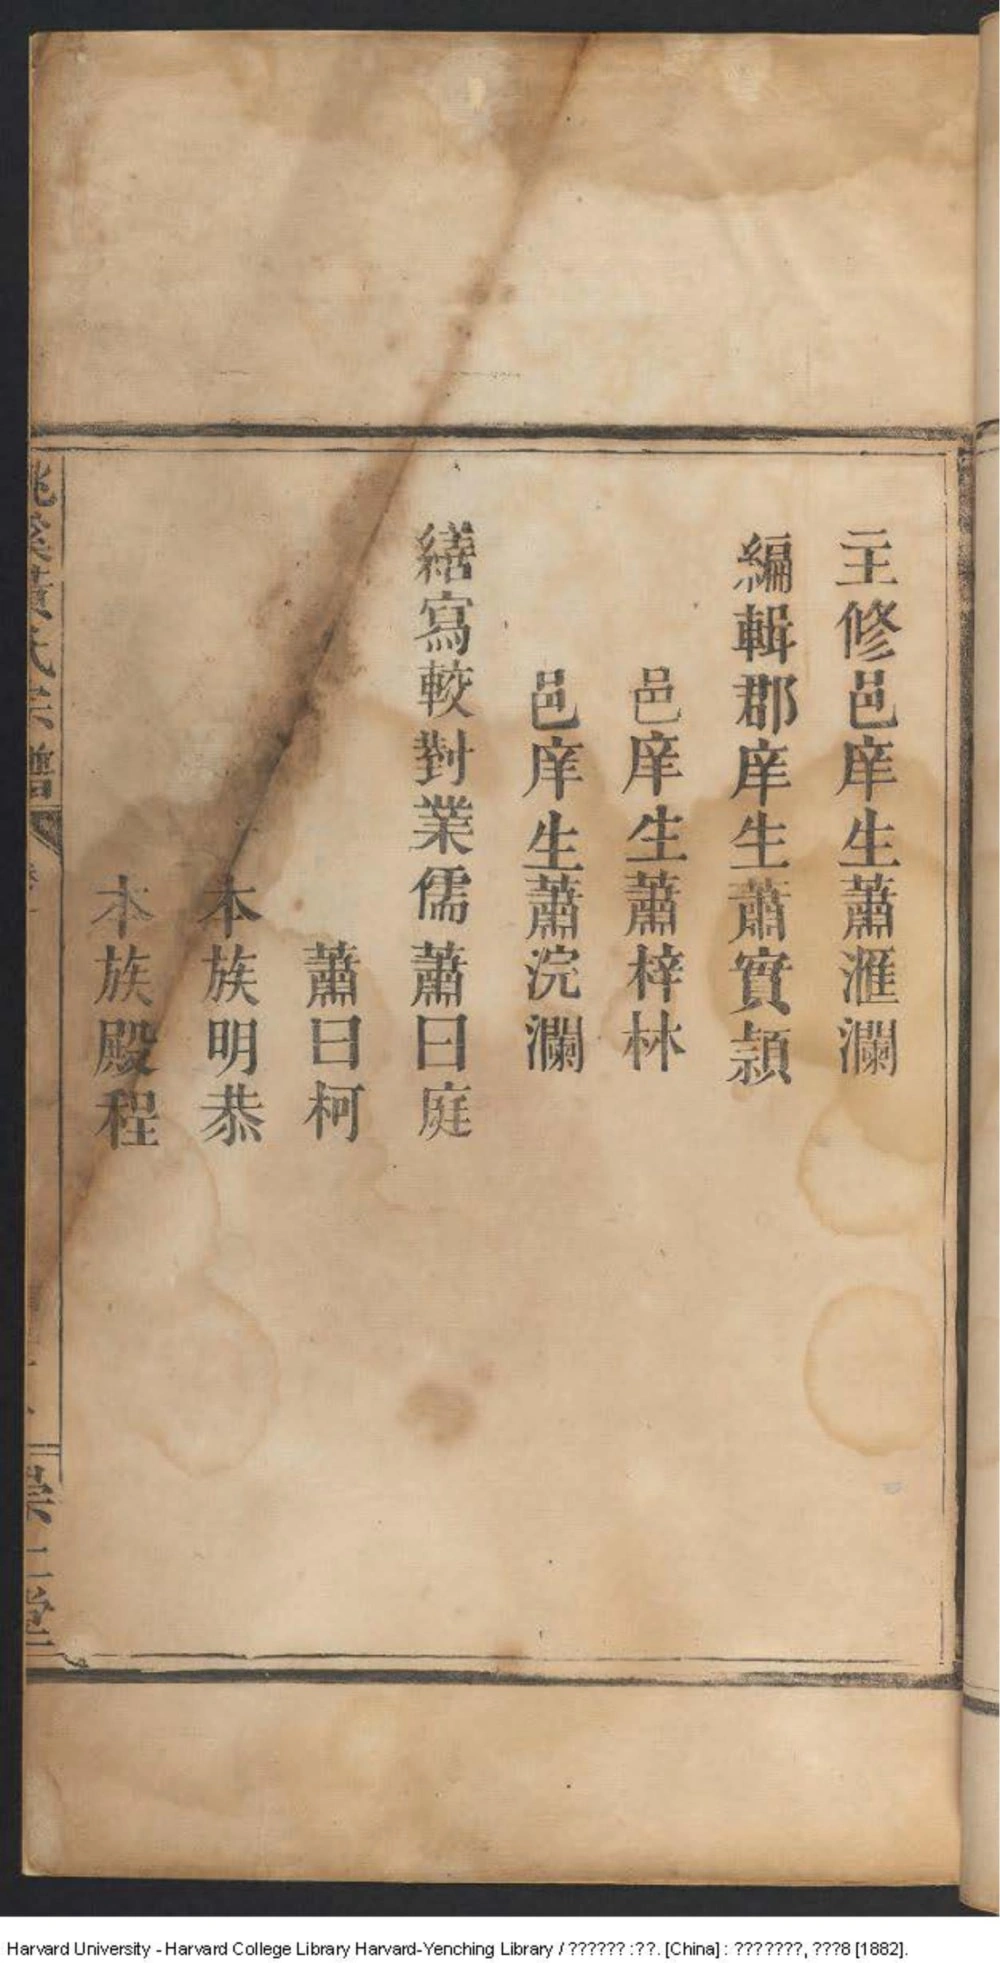 主修邑庠生蕭滙瀾
編輯郡庠生蕭實頴
邑庠生蕭梓林
邑庠生蕭浣瀾
繕寫較對業儒蕭曰庭
蕭曰柯
本族明恭
本族殿程
黃氏宗譜
Harvard University - Harvard College Library Harvard-Yenching Library / ?????? :??. [China] : ???????, ???8 [1882].